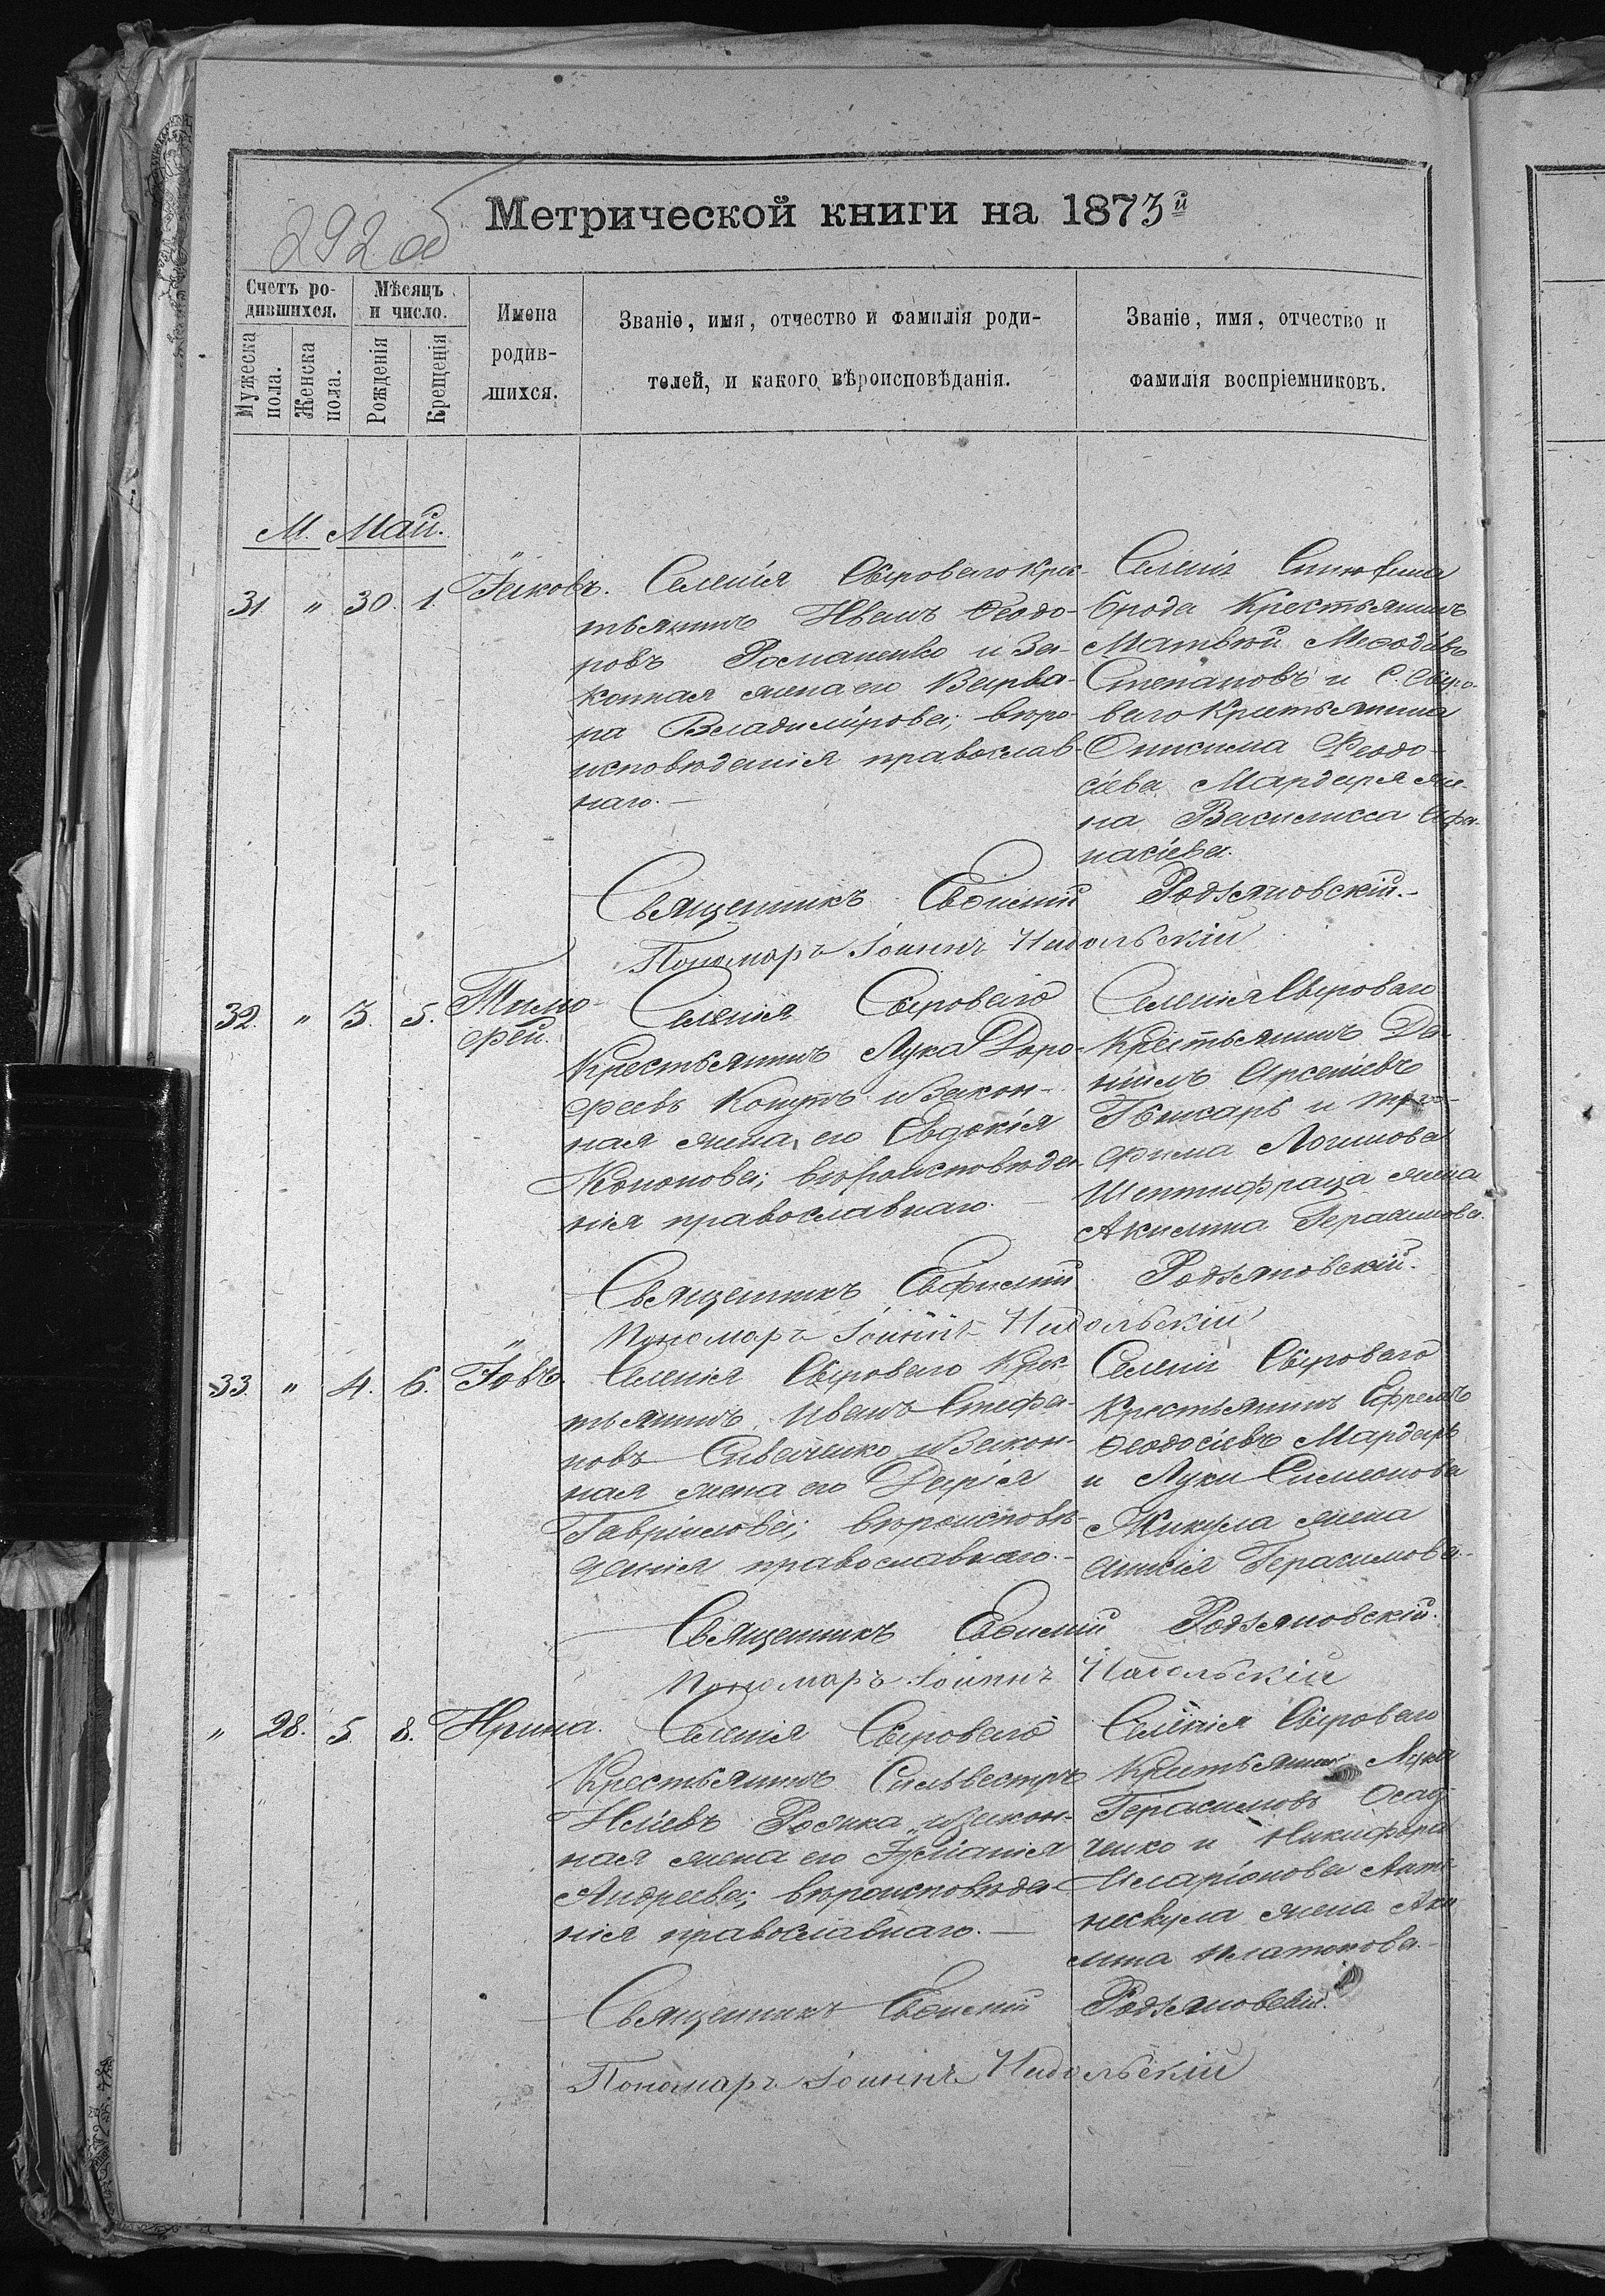 292 об
Метрической книги на 1873й
Счетъ родившихся.
Мѣсяцъ и число.
Имена родившихся.
Званіе, имя, отчество и фамилія родителей, и какого вѣроисповѣданія.
Званіе, имя, отчество и фамилія воспріемниковъ.
Мужеска пола.
Женска пола.
Рожденія
Крещенія
М. Май.
31 " 30. 1. Іаковъ.
Селенія Сыроваго Кре-
стьянинъ Иванъ Ѳеодо-
ровъ Романенко и за-
конная жена его Варва-
ра Владимірова; вѣро-
исповѣданія православ-
наго.—
Селенія
брода крестьянинъ
Матвѣй Меѳодіевъ
Степановъ и с. Сыро-
ваго Крестьянина
Онисима Ѳеодо-
сіева Мардаря же-
на Василисса Афа-
насіева.
Священникъ Евѳимій Родзяновскій.
Пономарь Іоаннъ
32. " 3. 5. Тимо-
фей.
Селенія Сыроваго
Крестьянинъ Лука Доро-
феевъ и закон-
ная жена его Евдокія
Кононова; вѣроисповѣда-
нія православнаго.—
Селенія Сыроваго
Крестьянинъ Да-
ніилъ Арсеніевъ
и Тро-
фима Логинова
жена
Акилина Герасимова.
Священникъ Евфимій Родзяновскій.
Пономарь Іоаннъ
33. " 4. 6. Іовъ.
Селенія Сыроваго Кре-
стьянинъ Иванъ Стефа-
новъ Сиваченко и закон-
ная жена его Дарія
Гавріилова; вѣроисповѣ-
данія православнаго.—
Селенія Сыроваго
Крестьянинъ Ефремъ
Ѳеодосіевъ Мардарь
и Луки Симеонова
Жикула жена
Анисія Герасимова.
Священникъ Евѳимій Родзяновскій.
Пономарь Іоаннъ
" 28. 5. 8. Ирина.
Селенія Сыроваго
Крестьянинъ Сильвестръ
Иліевъ и закон-
ная жена его Іуліанія
Андреева; вѣроисповѣда-
нія православнаго.—
Селенія Сыроваго
Крестьянинъ Лука
Герасимовъ Осад-
ченко и Никифора
Иларіонова
жена Аки-
лина Платонова.
Священникъ Евѳимій Родзяновскій.
Пономарь Іоаннъ